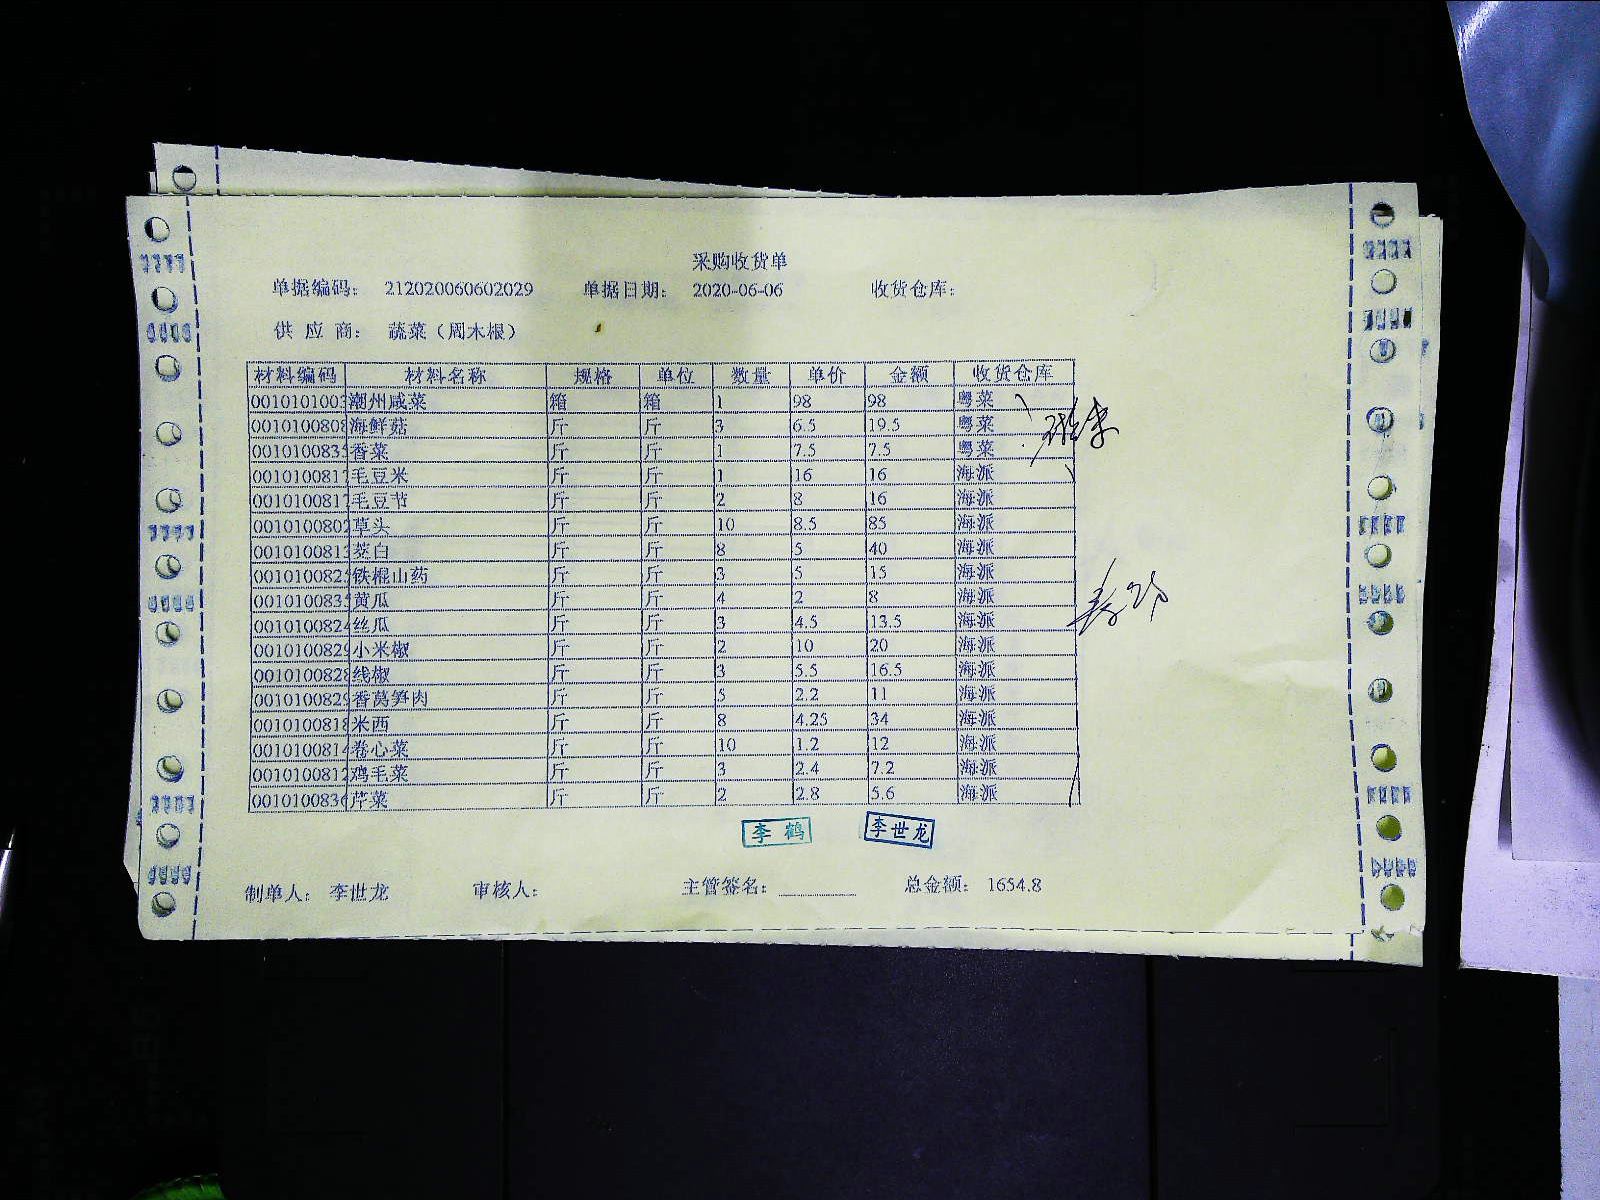 采购收货单
单据编码： 212020060602029 单据日期： 2020-06-06 收货仓库：
供 应 商： 蔬菜（周木根）
材料编码 材料名称 规格 单位 数量 单价 金额 收货仓库
0010101003 潮州咸菜 箱 箱 1 98 98 粤菜
0010100808 海鲜菇 斤 斤 3 6.5 19.5 粤菜
0010100835 香菜 斤 斤 1 7.5 7.5 粤菜
0010100817 毛豆米 斤 斤 1 16 16 海派
0010100817 毛豆节 斤 斤 2 8 16 海派
0010100802 草头 斤 斤 10 8.5 85 海派
0010100813 茭白 斤 斤 8 5 40 海派
0010100825 铁棍山药 斤 斤 3 5 15 海派
0010100835 黄瓜 斤 斤 4 2 8 海派
0010100824 丝瓜 斤 斤 3 4.5 13.5 海派
0010100829 小米椒 斤 斤 2 10 20 海派
0010100828 线椒 斤 斤 3 5.5 16.5 海派
0010100829 香莴笋肉 斤 斤 5 2.2 11 海派
0010100818 米西 斤 斤 8 4.25 34 海派
0010100814 卷心菜 斤 斤 10 1.2 12 海派
0010100812 鸡毛菜 斤 斤 3 2.4 7.2 海派
0010100836 芹菜 斤 斤 2 2.8 5.6 海派
李鹤 李世龙
制单人： 李世龙 审核人： 主管签名： 总金额： 1654.8